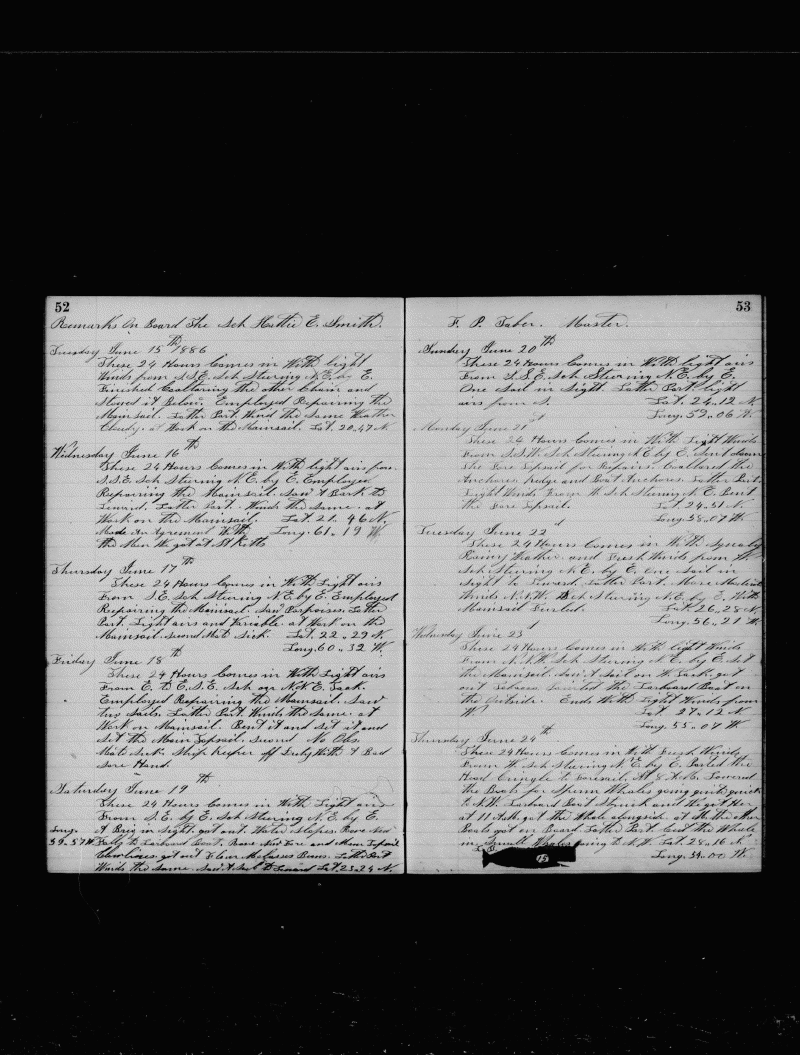 52
Remarks On Board The Sch Hattie E. Smith.
Tuesday June 15th 1886
These 24 Hours Comes in With light
Winds from S.S.E. Sch Stering N.E. by E.
Finished Coaltaring the other Chain and
Stowed it Below. Employed Repairing the
Mainsail. Latter Part Wind the Same Weather
Cloudy. at Work on the Mainsail. Lat. 20.47 N
Wednesday June 16th
These 24 Hours Comes in With light airs from
S.S.E. Sch Stering N.E. by E. Employed
Repairing the Mainsail. Saw A Bark to
Leward. Latter Part. Winds the Same. at
Work on the Mainsail. Lat. 21. 46 N.
Made An Agrement With Long. 61. 19 W.
the Men We got at St Kitts
Thursday June 17th
These 24 Hours Comes in With Light airs
From S.E. Sch Stering N.E. by E. Employed
Repairing the Mainsail. Saw Porpoises. Latter
Part. Light airs and Variable. at Work on the
Mainsail. Second Mate Sick. Lat. 22. 29 N.
Long. 60. 32 W.
Friday June 18th
These 24 Hours Comes in With Light airs
From E. to E.S.E. Sch on N.N.E. Tack.
Employed Repairing the Mainsail. Saw
two Sails. Latter Part. Winds the Same. at
Work on Mainsail. Bent it and Set it and
Set the Main Topsail. Second No Obs.
Mate Sick. Ship keeper off Duty With A Bad
Sore Hand.
Saturday June 19th
These 24 Hours Comes in With Light airs
From S.E. by E. Sch Stering N.E. by E.
Long. A Brig in Sight. got out Water Rove New
59. 57 W. Falls to Larboard Boat. Rove New Fore and Main Topsail
Clewlines. got out Flour Molasses Beans. Latter Part
Winds the Same. Saw A Sail to Leward Lat. 23.24 N.
53
F. P. Taber. Master.
Sunday June 20th
These 24 Hours Comes in With light airs
From S.S.E. Sch Stering N.E. by E.
One Sail in Sight. Latter Part light
airs from S. Lat. 24.12 N.
Long. 59. 06 W.
Monday June 21st
These 24 Hours Comes in With Light Winds
From S.S.W. Sch Stering N.E. by E. Sent down
the Fore Topsail for Repairs. Coaltared the
Anchors, kedge and Boat Anchors. Latter Part.
Light Winds From W. Sch Stering N.E. Bent
the Fore Topsail. Lat 24.51 N.
Long. 58. 07 W.
Tuesday June 22d
These 24 Hours Comes in With Squaly
Rainy Weather and Fresh Winds from W.
Sch Stering N.E. by E. One Sail in
Sight to Leward. Latter Part. More Moderate
Winds N.N.W. Sch Stering N.E. by E. With
Mainsail Furled. Lat 26, 28 N.
Long. 56. 21 W.
Wednesday June 23d
These 24 Hours Comes in With light Winds
From N.N.W. Sch Stering N.E. by E. Set
the Mainsail. Saw A Sail on W. Tack. got
out Tobacco the Larboard Boat on
the Outside. Ends With Light Winds from
W. Lat. 27. 12 N
Long. 55. 07 W.
Thursday June 24th
These 24 Hours Comes in With Fresh Winds
From W. Sch Stering N.E. by E. Parted the
Head Cringle to Foresail. At 8 A.M. Lowered
the Boats for Sperm Whales going quite quick
to N.W. Larboard Boat Struck and We got Her
at 11 A.M. got the Whale alongside. at M. the other
Boats got on Board. Latter Part. Cut the Whale
in. Small Whales going to N.W. Lat. 28. 16 N.
15
Long. 54. 00 W.